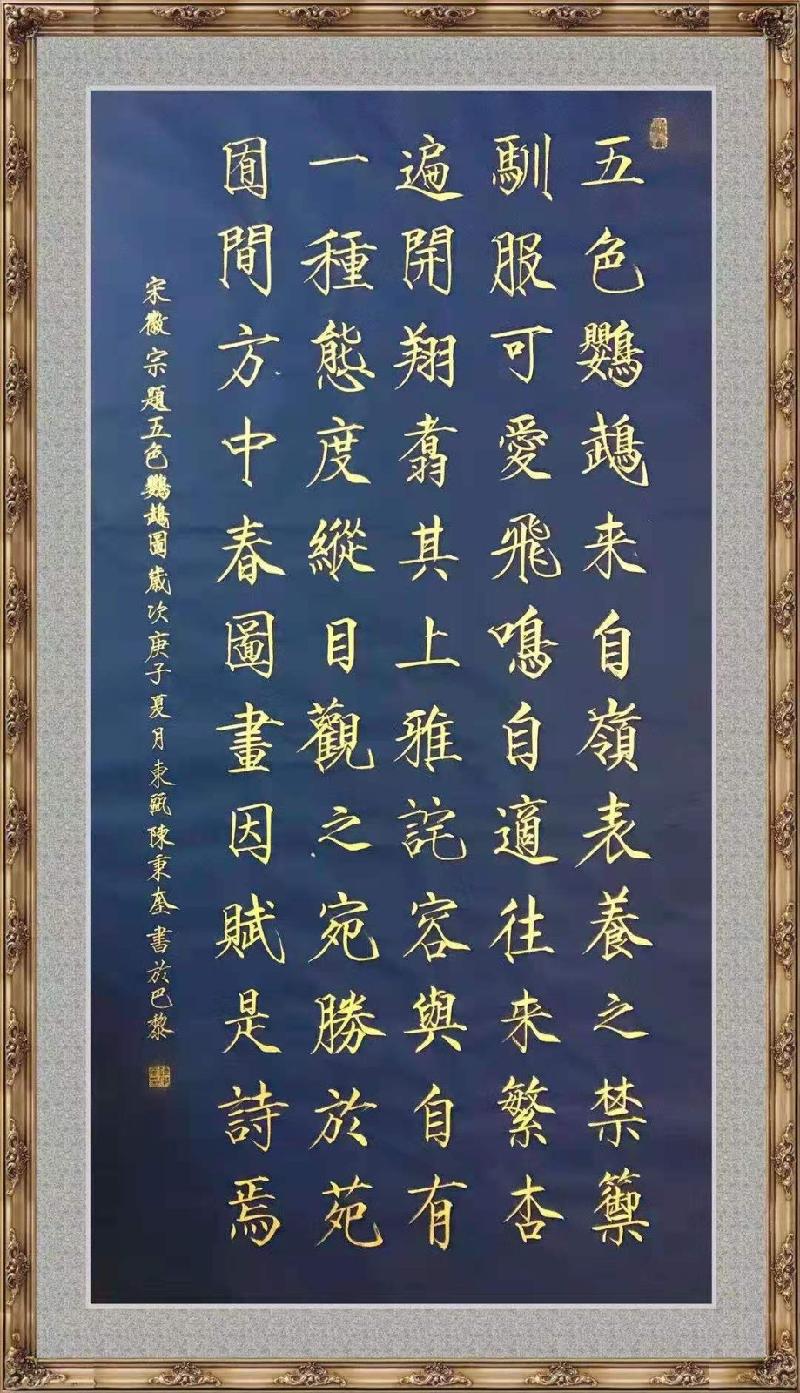 五色鸚鵡来自嶺表養之禁籞
馴服可愛飛鳴自適往来繁杏
遍開翔翥其上雅詫容與自有
一種態度縱目觀之宛勝於苑
囿間方中春圖畫因賦是詩焉
宋徽宗題五色鸚鵡圖歲次庚子夏月東甌陳秉奎書於巴黎